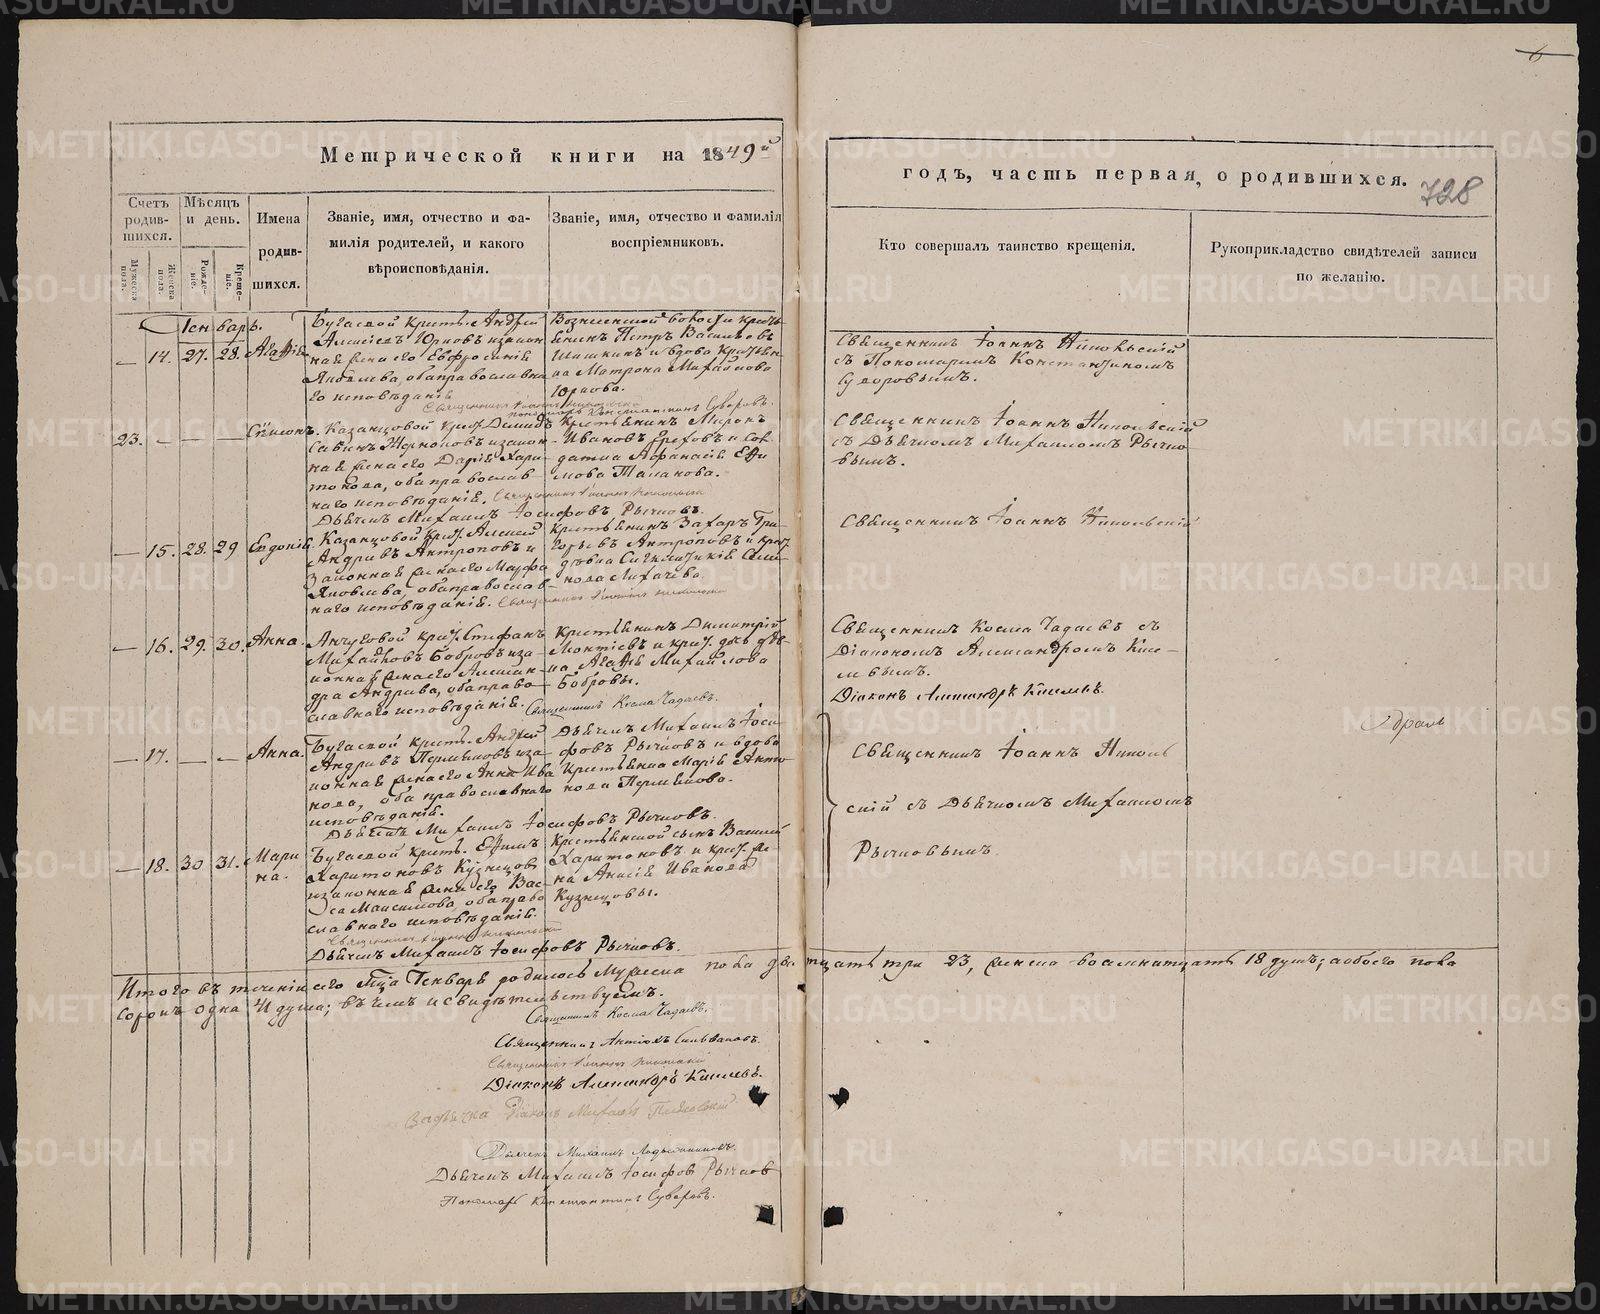 6
Метрической книги на 1849й
годъ, часть первая, о родившихся.
728
Счетъ родив-шихся.
Мѣсяцъ и день.
Имена родив-шихся.
Званіе, имя, отчество и фа-
милія родителей, и какого
вѣроисповѣданія.
Званіе, имя, отчество и фамилія
воспріемниковъ.
Кто совершалъ таинство крещенія.
Рукоприкладство свидѣтелей записи
по желанію.
Мужеска пола.
Женска пола.
Рожде-ніе.
Креще-ніе.
Генварь.
— 14. 27. 28. Агафія
Бугаевой крест. Андрей
Алексѣевъ Юрковъ и закон
ная жена его Евфросинія
Яковлева, оба православна
го исповѣданія
крестья
енинъ Петръ Васильевъ
Шишкинъ и вдова
Матрона Михайлова
Юркова.
Священникъ Іоаннъ Никольскій
съ Пономаремъ Константиномъ
Суворовымъ.
Пономарь Константинъ Суворовъ.
23. — — —
Казанцовой крест. Демидъ
Савинъ и закон
ная жена его Дарія Хари
тонова, оба православ
наго исповѣданія. Священникъ Іоаннъ Никольскій
Дьячекъ Михаилъ Іосифовъ Рычковъ.
Крестьянинъ Миронъ
Ивановъ и сол
датка Афанасія Ефи
мова
Священникъ Іоаннъ Никольскій
съ Дьячкомъ Михаиломъ Рычко
вымъ.
— 15. 28. 29 Евдокія.
Казанцовой крест. Алексей
Андріевъ Антроповъ и
законная жена его Марфа
Яковлева, оба православ-
наго исповѣданія. Священникъ Іоаннъ Никольскій
Крестьянинъ Захаръ Гри-
горьевъ Антроповъ и крест.
дѣвка Семе
нова Лихачева.
Священникъ Іоаннъ Никольскій
— 16. 29. 30. Анна.
крест. Стефанъ
Михайловъ Бобровъ и за
конная жена его Алексан
дра Андріева, оба право
славнаго исповѣданія. Священникъ Косма Чадаевъ.
Крестьянинъ Димитрій
и крест. дочь дѣв
ка Агафія Михайлова
Бобровы.
Священникъ Косма Чадаевъ съ
Діакономъ Александромъ Кисе-
левымъ.
Діаконъ Александръ Киселевъ.
— 17. — — Анна.
Бугаевой крест. Андрей
Андріевъ Пермяковъ и за
конная жена его Анна Ива
нова, оба православнаго
исповѣданія.
Дьячекъ Михаилъ Іосифовъ Рычковъ.
Дьячекъ Михаилъ Іоси
фовъ Рычковъ и вдова
Крестьянка Марія Анто
нова Пермякова.
Священникъ Іоаннъ Николь
скій съ Дьячкомъ Михаиломъ
Рычковымъ
— 18. 30 31. Мари
на.
Бугаевой крест. Ефимъ
Харитоновъ Кузнецовъ
и законная жена его Вас-
са Максимова, оба право
славнаго исповѣданія.
Священникъ Іоаннъ Никольскій
Дьячекъ Михаилъ Іосифовъ Рычковъ.
Крестьянской сынъ Василий
Харитоновъ и крест. же
на Анисія Иванова
Кузнецовы.
Итого въ теченіи сего М-ца Генваря родилось Мужеска пола двадцать три 23, женска восемнатцать 18 душъ; а обоего пола
сорокъ одна 41 душа; въ чемъ и свидѣтельствуемъ.
Священникъ Косма Чадаевъ.
Священникъ Антіохъ Сильвановъ.
Священникъ Іоаннъ Никольскій
Діаконъ Александръ Киселевъ.
Діаконъ Михаилъ
Дьячекъ Михаилъ
Дьячекъ Михаилъ Іосифовъ Рычковъ
Пономарь Константинъ Суворовъ.
METRIKI.GASO-URAL.RU